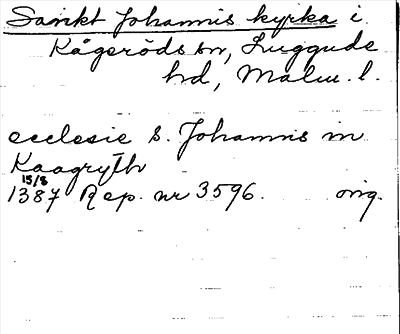 Sankt Johannis kyrka i
Kågeröds sn, Luggude
hd, Malm. l.
ecclesie S. Johannis in
Kaagryth
15/8
1387 Rep. nr 3596. orig.